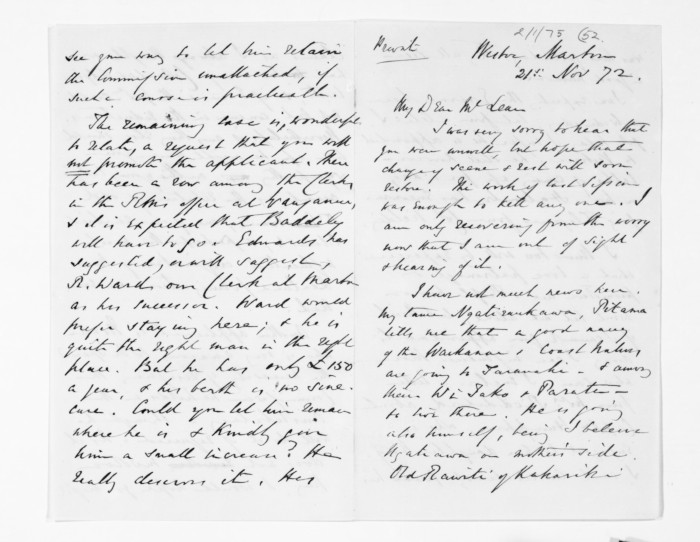 see your way to let him retain
the Commission unattached, if
such course is practicable.
The remaining case is, wonderful
to relate, a request that you will
not promote the applicant. There
has been a row among the Clerks
in the R.M's office at Wanganui,
& it is expected that Baddeley
will have to go. Edwards has
suggested, or will suggest,
R. Ward our Clerk at Marton
as his successor. Ward would
prefer staying here; & he is
quite the right man in the right
place. But he has only £150
a year, & his berth is no sine-
cure. Could you let him remain
where he is & kindly give
him a small increase? He
really deserves it. His
2/1/75 (52
Private
Westoe, Marton
21st Nov 72.
My Dear Mr McLean
I was very sorry to hear that
you were unwell, but hope that
change of scene & rest will soon
restore. The work of last Session
was enough to kill any one. I
am only recovering from the worry
now that I am out of sight
& hearing of it.
I have not much news here.
My tame Ngatiraukawa, Pitama
tells me that a good many
of the Waikanae & Coast Natives
are going to Taranaki – & among
them Wi Tako & Parata –
to live there. He is going
also himself, being I believe
Ngatiawa on mother's side.
Old Rawiti of Kakariki